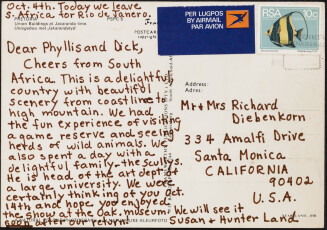 Oct. 4th. Today we leave
S. Africa for Rio de Janero.
Union Buildings at Jacaranda-time
Uniegebou met Jakarandatyd
Dear Phyllis and Dick,
Cheers from South
Africa. This is a delightful
country with beautiful
scenery from coastline to
high mountain. We had
the fun experience of visiting
a game reserve and seeing
herds of wild animals. We
also spent a day with a
delightful family - the Scullys.
He is head of the art dept of
a large university. We were
certainly thinking of you Oct.
14th and hope you enjoyed
the show at the Oak. museum
soon after our return.
We will see it
Susan + Hunter Land
POSTCARD
PER LUGPOS
BY AIRMAIL
PAR AVION
RSA
20c
Address:
Adres:
Mr + Mrs Richard
Diebenkorn
334 Amalfi Drive
Santa Monica
CALIFORNIA
90402
U.S.A.